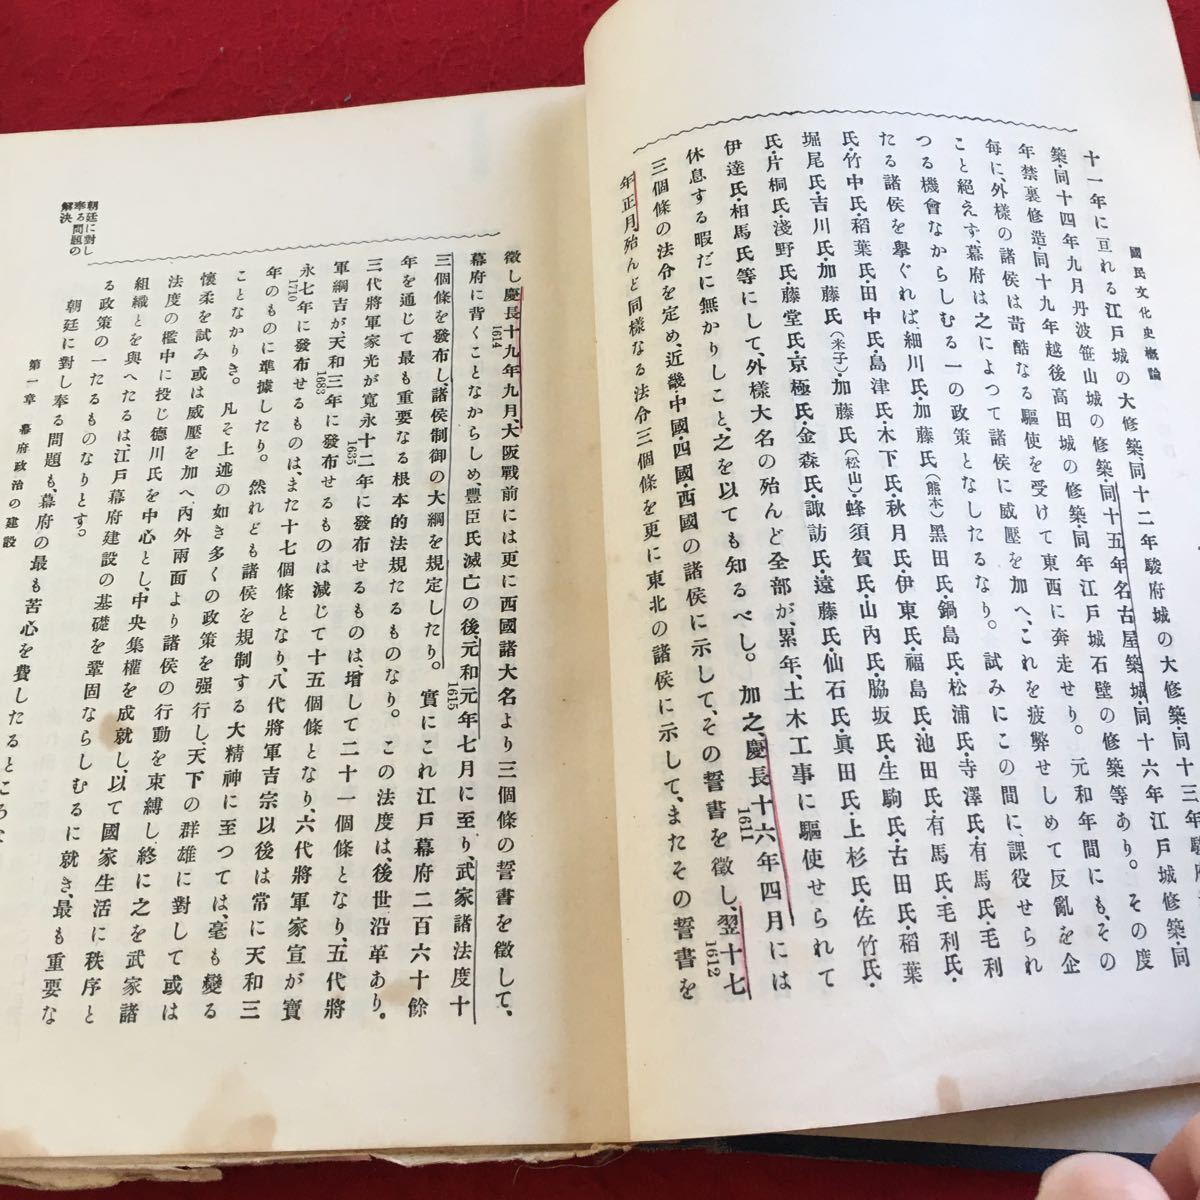 國民文化史概論
十一年に亘れる江戸城の大修築、同十二年駿府城の大修築、同十三年駿府
築、同十四年九月丹波笹山城の修築、同十五年名古屋築城、同十六年江戸城修築、同
年禁裏修造、同十九年越後高田城の修築、同年江戸城石壁の修築等あり。その度
毎に、外樣の諸侯は苛酷なる驅使を受けて東西に奔走せり。元和年間にも、その
こと絶えず、幕府は之によつて諸侯に威壓を加へ、これを疲弊せしめて反亂を企
つる機會なからしむる一の政策となしたるなり。試みにこの間に、課役せられ
たる諸侯を擧ぐれば、細川氏・加藤氏(熊本)・黑田氏・鍋島氏・松浦氏・寺澤氏・有馬氏・毛利
氏・竹中氏・稻葉氏・田中氏・島津氏・木下氏・秋月氏・伊東氏・福島氏・池田氏・有馬氏・毛利氏・
堀尾氏・吉川氏・加藤氏(米子)・加藤氏(松山)・蜂須賀氏・山內氏・脇坂氏・生駒氏・古田氏・稻葉
氏・片桐氏・淺野氏・藤堂氏・京極氏・金森氏・諏訪氏・遠藤氏・仙石氏・眞田氏・上杉氏・佐竹氏・
伊達氏・相馬氏等にして、外樣大名の殆んど全部が、累年、土木工事に驅使せられて
休息する暇だに無かりしこと、之を以ても知るべし。加之、慶長十六年四月には
1611
三個條の法令を定め、近畿・中國・四國・西國の諸侯に示して、その誓書を徵し、翌十七
1612
年正月殆んど同樣なる法令三個條を更に東北の諸侯に示して、またその誓書を
徵し、慶長十九年九月大阪戰前には更に西國諸大名より三個條の誓書を徵して、
1614
幕府に背くことなからしめ、豐臣氏滅亡の後、元和元年七月に至り、武家諸法度十
1615
三個條を發布し、諸侯制御の大綱を規定したり。實にこれ江戸幕府二百六十餘
年を通じて最も重要なる根本的法規たるものなり。この法度は、後世沿革あり。
三代將軍家光が寬永十二年に發布せるものは、增して二十一個條となり、五代將
1635
軍綱吉が、天和三年に發布せるものは減じて十五個條となり、六代將軍家宣が寶
1683
永七年に發布せるものは、また十七個條となり、八代將軍吉宗以後は常に天和三
1710
年のものに準據したり。然れども諸侯を規制する大精神に至つては、毫も變る
ことなかりき。凡そ上述の如き多くの政策を强行し、天下の群雄に對して或は
懷柔を試み或は威壓を加へ、內外兩面より諸侯の行動を束縛し、終に之を武家諸
法度の檻中に投じ德川氏を中心とし、中央集權を成就し、以て國家生活に秩序と
組織とを與へたるは、江戸幕府建設の基礎を鞏固ならしむるに就き、最も重要な
る政策の一たるものなりとす。
朝廷に對し
奉る問題の
解決
朝廷に對し奉る問題も、幕府の最も苦心を費したるところな
第一章 幕府政治の建設